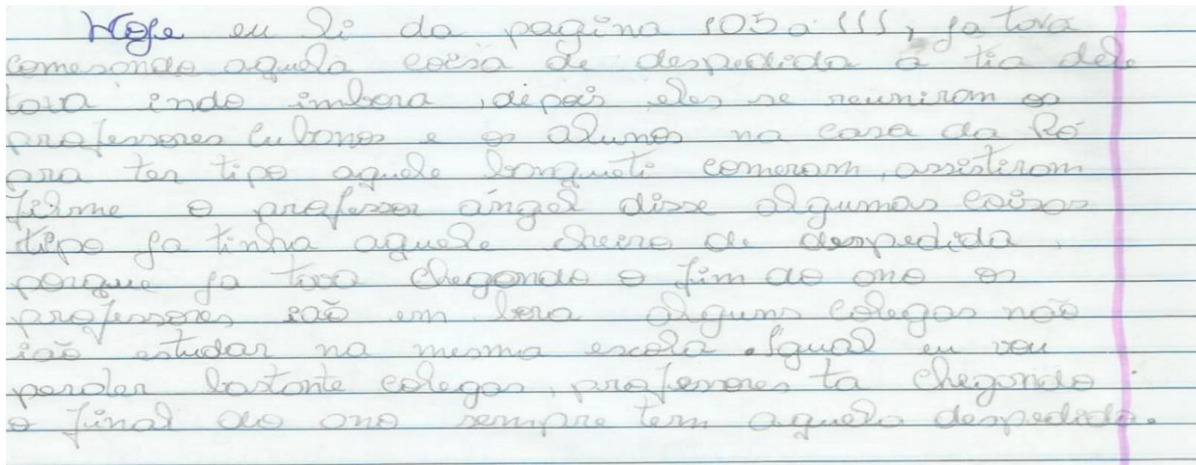 Hoje eu li da pagina 105 a 111, ja tava
comesando aquela coisa de despedida a tia dele
tava indo imbora, depois eles se reuniram os
professores cubanos e os alunos na casa da Ró
para ter tipo aquele banqueti comeram, assistiram
filme o professor ángel disse algumas coisas
tipo ja tinha aquele cheiro de despedida,
porque ja tava chegando o fim do ano os
professores ião em bora alguns colegas não
ião estudar na mesma escola. Igual eu vou
perder bastante colegas, professores ta chegando
o final do ano sempre tem aquela despedida.